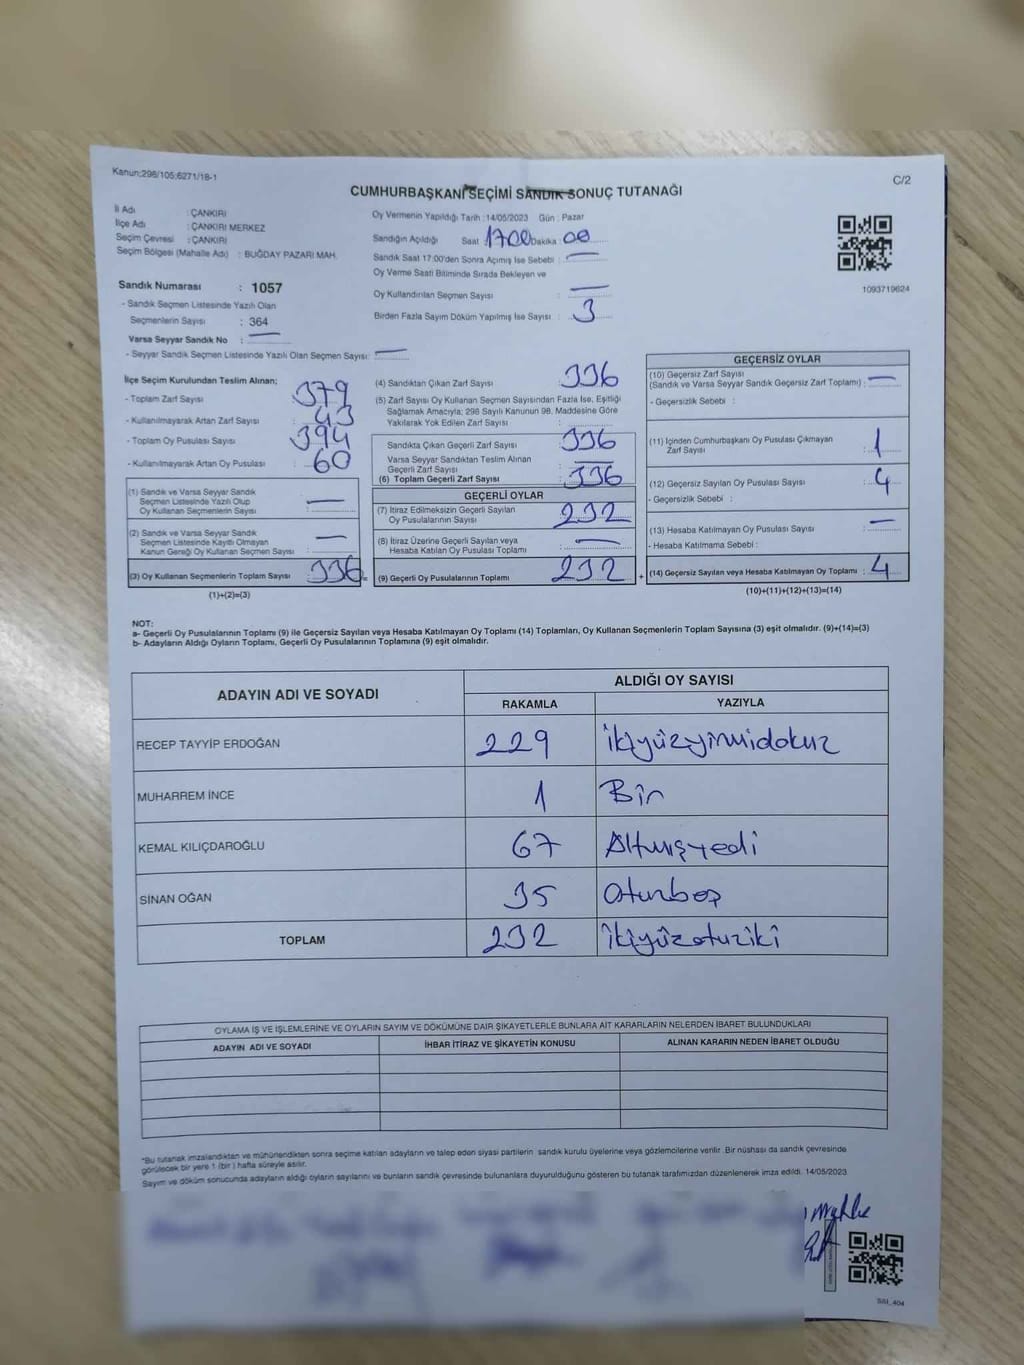 Kanun;298/105;6271/18-1
C/2
CUMHURBAŞKANI SEÇİMİ SANDIK SONUÇ TUTANAĞI
İl Adı : ÇANKIRI
İlçe Adı : ÇANKIRI MERKEZ
Seçim Çevresi : ÇANKIRI
Seçim Bölgesi (Mahalle Adı) : BUĞDAY PAZARI MAH.
Sandık Numarası : 1057
- Sandık Seçmen Listesinde Yazılı Olan
Seçmenlerin Sayısı : 364
Varsa Seyyar Sandık No : —
- Seyyar Sandık Seçmen Listesinde Yazılı Olan Seçmen Sayısı: —
Oy Vermenin Yapıldığı Tarih :14/05/2023 Gün : Pazar
Sandığın Açıldığı Saat 1700 Dakika : 00
Sandık Saat 17:00'den Sonra Açımış İse Sebebi : —
Oy Verme Saati Bitiminde Sırada Bekleyen ve
Oy Kullandırılan Seçmen Sayısı : —
Birden Fazla Sayım Döküm Yapılmış İse Sayısı : 3
1093719624
İlçe Seçim Kurulundan Teslim Alınan;
- Toplam Zarf Sayısı : 379
- Kullanılmayarak Artan Zarf Sayısı : 43
- Toplam Oy Pusulası Sayısı : 394
- Kullanılmayarak Artan Oy Pusulası : 60
(1) Sandık ve Varsa Seyyar Sandık
Seçmen Listesinde Yazılı Olup
Oy Kullanan Seçmenlerin Sayısı : —
(2) Sandık ve Varsa Seyyar Sandık
Seçmen Listesinde Kayıtlı Olmayan
Kanun Gereği Oy Kullanan Seçmen Sayısı : —
(3) Oy Kullanan Seçmenlerin Toplam Sayısı 336 =
(1)+(2)=(3)
(4) Sandıktan Çıkan Zarf Sayısı : 336
(5) Zarf Sayısı Oy Kullanan Seçmen Sayısından Fazla İse, Eşitliği
Sağlamak Amacıyla; 298 Sayılı Kanunun 98. Maddesine Göre
Yakılarak Yok Edilen Zarf Sayısı :
Sandıkta Çıkan Geçerli Zarf Sayısı : 336
Varsa Seyyar Sandıktan Teslim Alınan
Geçerli Zarf Sayısı : —
(6) Toplam Geçerli Zarf Sayısı : 336
GEÇERLİ OYLAR
(7) İtiraz Edilmeksizin Geçerli Sayılan
Oy Pusulalarının Sayısı : 232
(8) İtiraz Üzerine Geçerli Sayılan veya
Hesaba Katılan Oy Pusulası Toplamı : —
(9) Geçerli Oy Pusulalarının Toplamı : 232 +
GEÇERSİZ OYLAR
(10) Geçersiz Zarf Sayısı
(Sandık ve Varsa Seyyar Sandık Geçersiz Zarf Toplamı) : —
- Geçersizlik Sebebi :
(11) İçinden Cumhurbaşkanı Oy Pusulası Çıkmayan
Zarf Sayısı : 1
(12) Geçersiz Sayılan Oy Pusulası Sayısı : 4
- Geçersizlik Sebebi :
(13) Hesaba Katılmayan Oy Pusulası Sayısı : —
- Hesaba Katılmama Sebebi :
(14) Geçersiz Sayılan veya Hesaba Katılmayan Oy Toplamı : 4
(10)+(11)+(12)+(13)=(14)
NOT:
a- Geçerli Oy Pusulalarının Toplamı (9) ile Geçersiz Sayılan veya Hesaba Katılmayan Oy Toplamı (14) Toplamları, Oy Kullanan Seçmenlerin Toplam Sayısına (3) eşit olmalıdır. (9)+(14)=(3)
b- Adayların Aldığı Oyların Toplamı, Geçerli Oy Pusulalarının Toplamına (9) eşit olmalıdır.
ADAYIN ADI VE SOYADI
ALDIĞI OY SAYISI
RAKAMLA YAZIYLA
RECEP TAYYİP ERDOĞAN 229 ikiyüzyirmidokuz
MUHARREM İNCE 1 Bir
KEMAL KILIÇDAROĞLU 67 Altmışyedi
SİNAN OĞAN 35 Otuzbeş
TOPLAM 232 ikiyüzotuziki
OYLAMA İŞ VE İŞLEMLERİNE VE OYLARIN SAYIM VE DÖKÜMÜNE DAİR ŞİKAYETLERLE BUNLARA AİT KARARLARIN NELERDEN İBARET BULUNDUKLARI
ADAYIN ADI VE SOYADI İHBAR İTİRAZ VE ŞİKAYETİN KONUSU ALINAN KARARIN NEDEN İBARET OLDUĞU
"Bu tutanak imzalandıktan ve mühürlendikten sonra seçime katılan adayların ve talep eden siyasi partilerin sandık kurulu üyelerine veya gözlemcilerine verilir. Bir nüshası da sandık çevresinde
görülecek bir yere 1 (bir) hafta süreyle asılır.
Sayım ve döküm sonucunda adayların aldığı oyların sayılarını ve bunların sandık çevresinde bulunanlara duyurulduğunu gösteren bu tutanak tarafımızdan düzenlenerek imza edildi. 14/05/2023
SSI_404